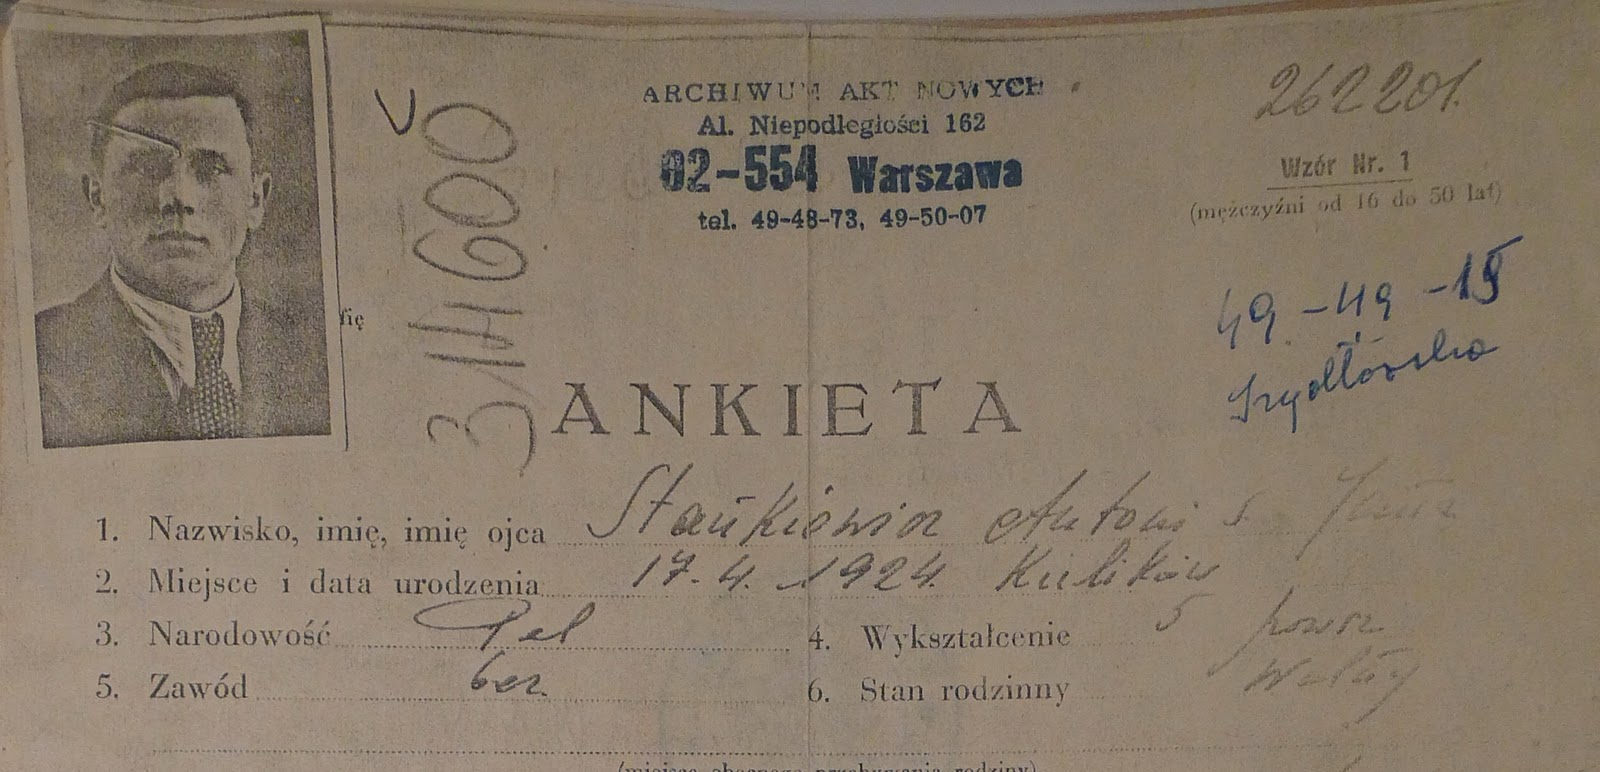 ARCHIWUM AKT NOWYCH
Al. Niepodległości 162
02-554 Warszawa
tel. 49-48-73, 49-50-07
262201.
Wzór Nr. 1
(mężczyźni od 16 do 50 lat)
49-49-15
Szydłowska
fię
ANKIETA
1. Nazwisko, imię, imię ojca Stankiewicz Antoni s.
2. Miejsce i data urodzenia 17.4.1924. Kulików
3. Narodowość Pol 4. Wykształcenie 5 powsz
5. Zawód bez. 6. Stan rodzinny Wolny
(miejsce obecnego przebywania rodziny)